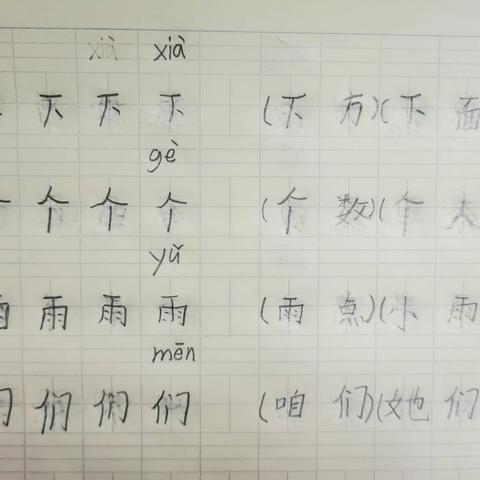 xià
下 下 下 (下 方)(下 面
gè
个 个 个 (个 数)(个 人
yǔ
雨 雨 雨 (雨 点)(小 雨
mēn
们 们 们 (咱 们)(她 们